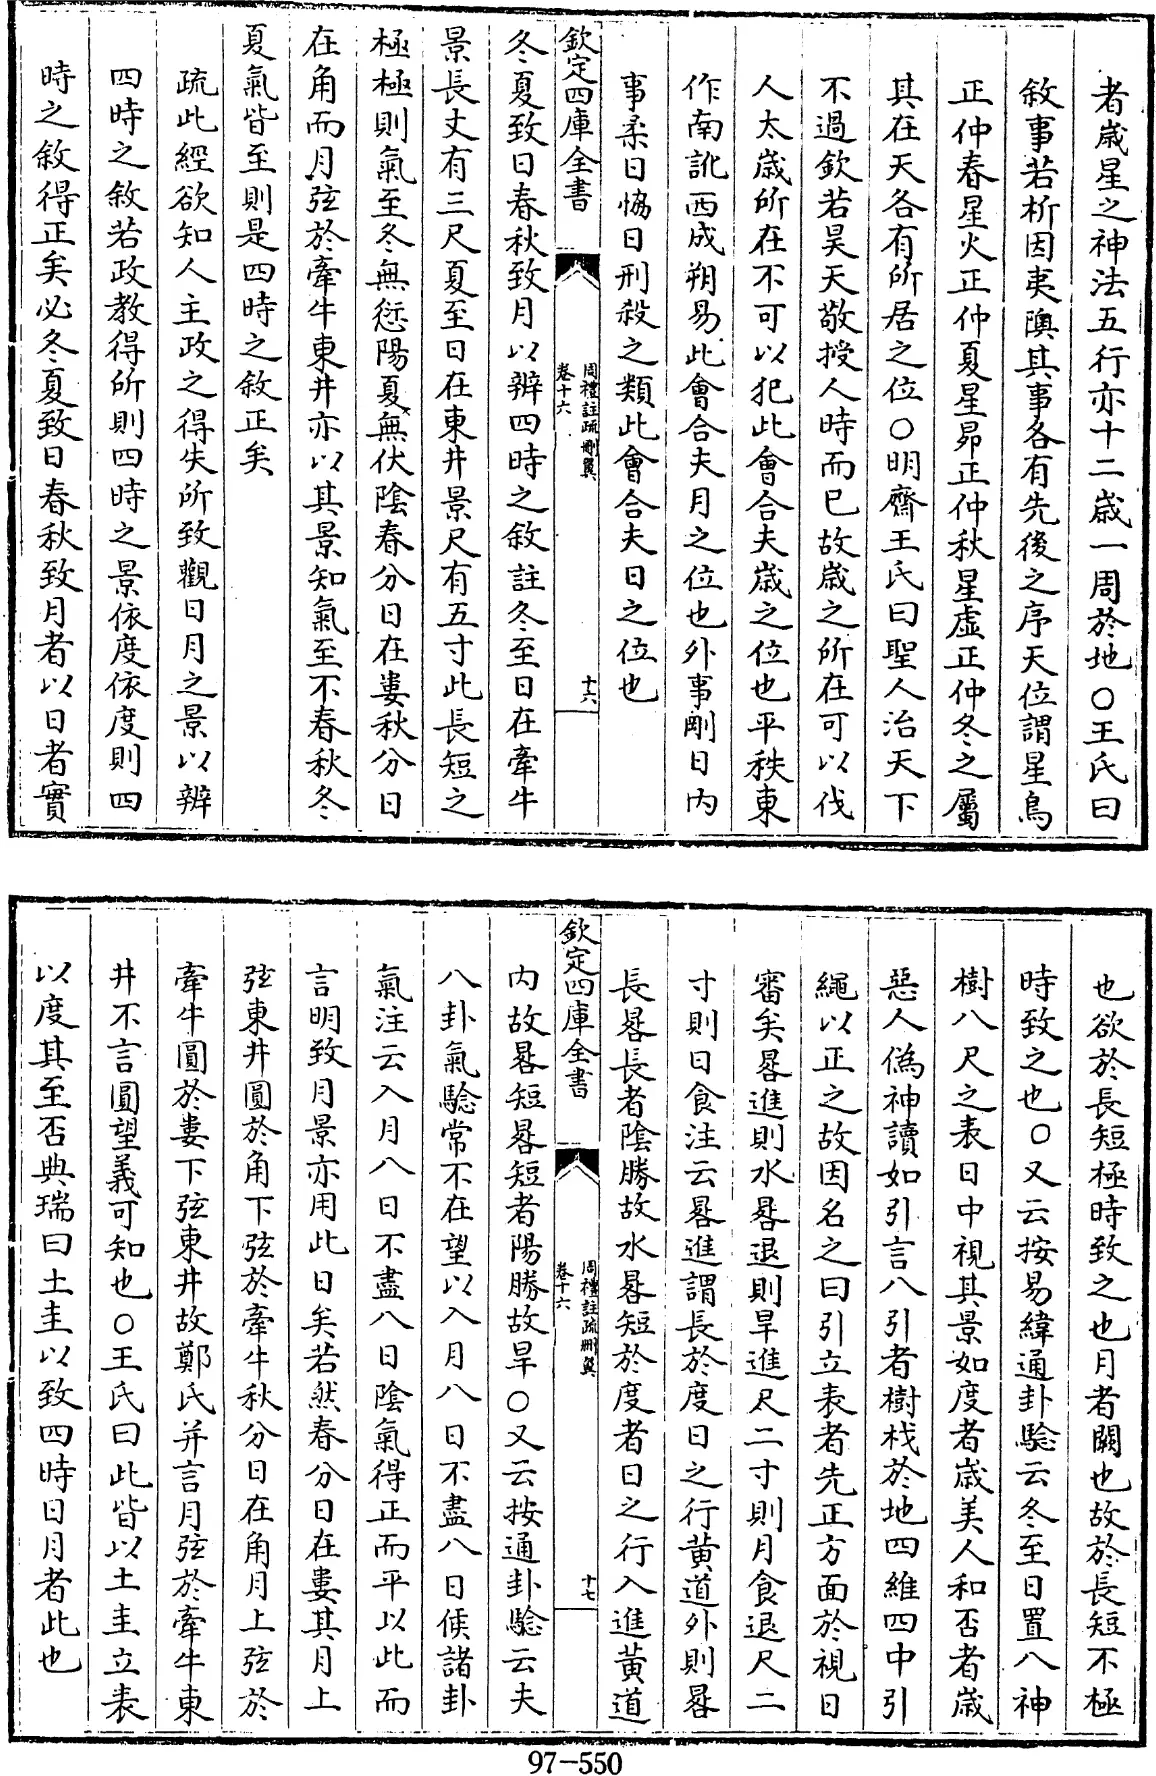 者歳星之神法五行亦十二歳一周於地○王氏曰
敘事若析因夷隩其事各有先後之序天位謂星鳥
正仲春星火正仲夏星昴正仲秋星虛正仲冬之屬
其在天各有所居之位○明齋王氏曰聖人治天下
不過欽若昊天敬授人時而已故歳之所在可以伐
人太歳所在不可以犯此會合夫歳之位也平秩東
作南訛西成朔易此會合夫月之位也外事剛日内
事柔日恊日刑殺之類此會合夫日之位也
欽定四庫全書
周禮註疏刪翼
卷十六
十六
冬夏致日春秋致月以辨四時之敘註冬至日在牽牛
景長丈有三尺夏至日在東井景尺有五寸此長短之
極極則氣至冬無愆陽夏無伏陰春分日在婁秋分日
在角而月弦於牽牛東井亦以其景知氣至不春秋冬
夏氣皆至則是四時之敘正矣
疏此經欲知人主政之得失所致觀日月之景以辨
四時之敘若政教得所則四時之景依度依度則四
時之敘得正矣必冬夏致日春秋致月者以日者實
也欲於長短極時致之也月者闕也故於長短不極
時致之也○又云按易緯通卦驗云冬至日置八神
樹八尺之表日中視其景如度者歳美人和否者歳
惡人僞神讀如引言八引者樹杙於地四維四中引
繩以正之故因名之曰引立表者先正方面於視日
審矣晷進則水晷退則旱進尺二寸則月食退尺二
寸則日食注云晷進謂長於度日之行黄道外則晷
長晷長者陰勝故水晷短於度者日之行入進黄道
欽定四庫全書
周禮註疏刪翼
卷十六
十七
内故晷短晷短者陽勝故旱○又云按通卦驗云夫
八卦氣驗常不在望以入月八日不盡八日候諸卦
氣注云入月八日不盡八日陰氣得正而平以此而
言明致月景亦用此日矣若然春分日在婁其月上
弦東井圓於角下弦於牽牛秋分日在角月上弦於
牽牛圓於婁下弦東井故鄭氏并言月弦於牽牛東
井不言圓望義可知也○王氏曰此皆以土圭立表
以度其至否典瑞曰土圭以致四時日月者此也
97-550